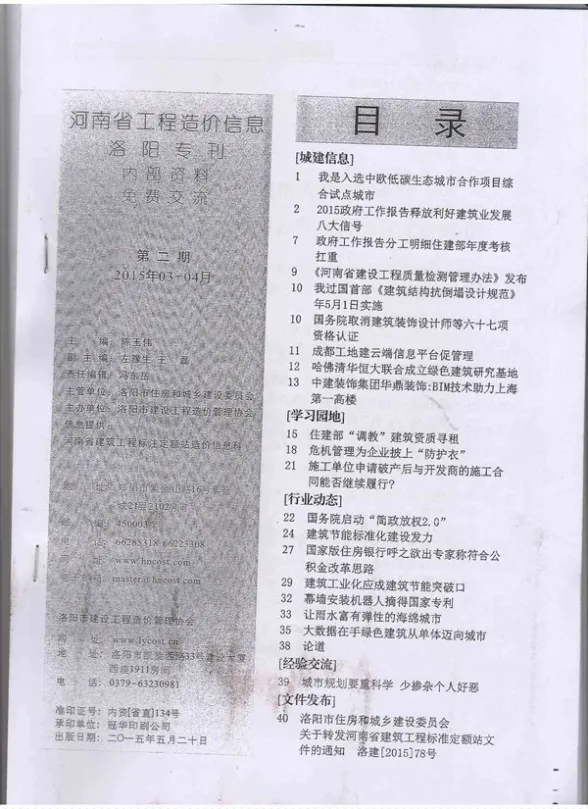 河南省工程造价信息
洛阳专刊
内部资料
免费交流
第二期
2015年03-04月
主 编：陈玉伟
副主编：左豫生 王磊
责任编辑：冯东岳
主管单位：洛阳市住房和城乡建设委员会
主办单位：洛阳市建设工程造价管理协会
信息提供
河南省建筑工程标准定额站造价信息科
450003
66285318 66223308
www.hncost.com
master@hncost.com
洛阳市建设工程造价管理协会
网 址：www.lycost.cn
地 址：洛阳市凯旋西路33号建设大厦
西座1911房间
电 话：0379-63230981
准印证号：内资[省直]134号
承印单位：冠华印刷公司
出版日期：二〇一五年五月二十日
目 录
[城建信息]
1 我是入选中欧低碳生态城市合作项目综
合试点城市
2 2015政府工作报告释放利好建筑业发展
八大信号
7 政府工作报告分工明细住建部年度考核
扛重
9 《河南省建设工程质量检测管理办法》发布
10 我过国首部《建筑结构抗倒塌设计规范》
年5月1日实施
10 国务院取消建筑装饰设计师等六十七项
资格认证
11 成都工地建云端信息平台促管理
12 哈佛清华恒大联合成立绿色建筑研究基地
13 中建装饰集团华鼎装饰:BIM技术助力上海
第一高楼
[学习园地]
15 住建部“调教”建筑资质寻租
18 危机管理为企业披上“防护衣”
21 施工单位申请破产后与开发商的施工合
同能否继续履行?
[行业动态]
22 国务院启动“简政放权2.0”
24 建筑节能标准化建设发力
27 国家版住房银行呼之欲出专家称符合公
积金改革思路
29 建筑工业化应成建筑节能突破口
32 幕墙安装机器人摘得国家专利
33 让雨水富有弹性的海绵城市
35 大数据在手绿色建筑从单体迈向城市
38 论道
[经验交流]
39 城市规划要重科学 少掺杂个人好恶
[文件发布]
40 洛阳市住房和城乡建设委员会
关于转发河南省建筑工程标准定额站文
件的通知 洛建[2015]78号